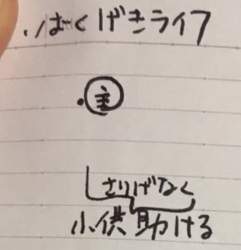 ・はくげきライフ
・㊤主
さりげなく
小供助ける